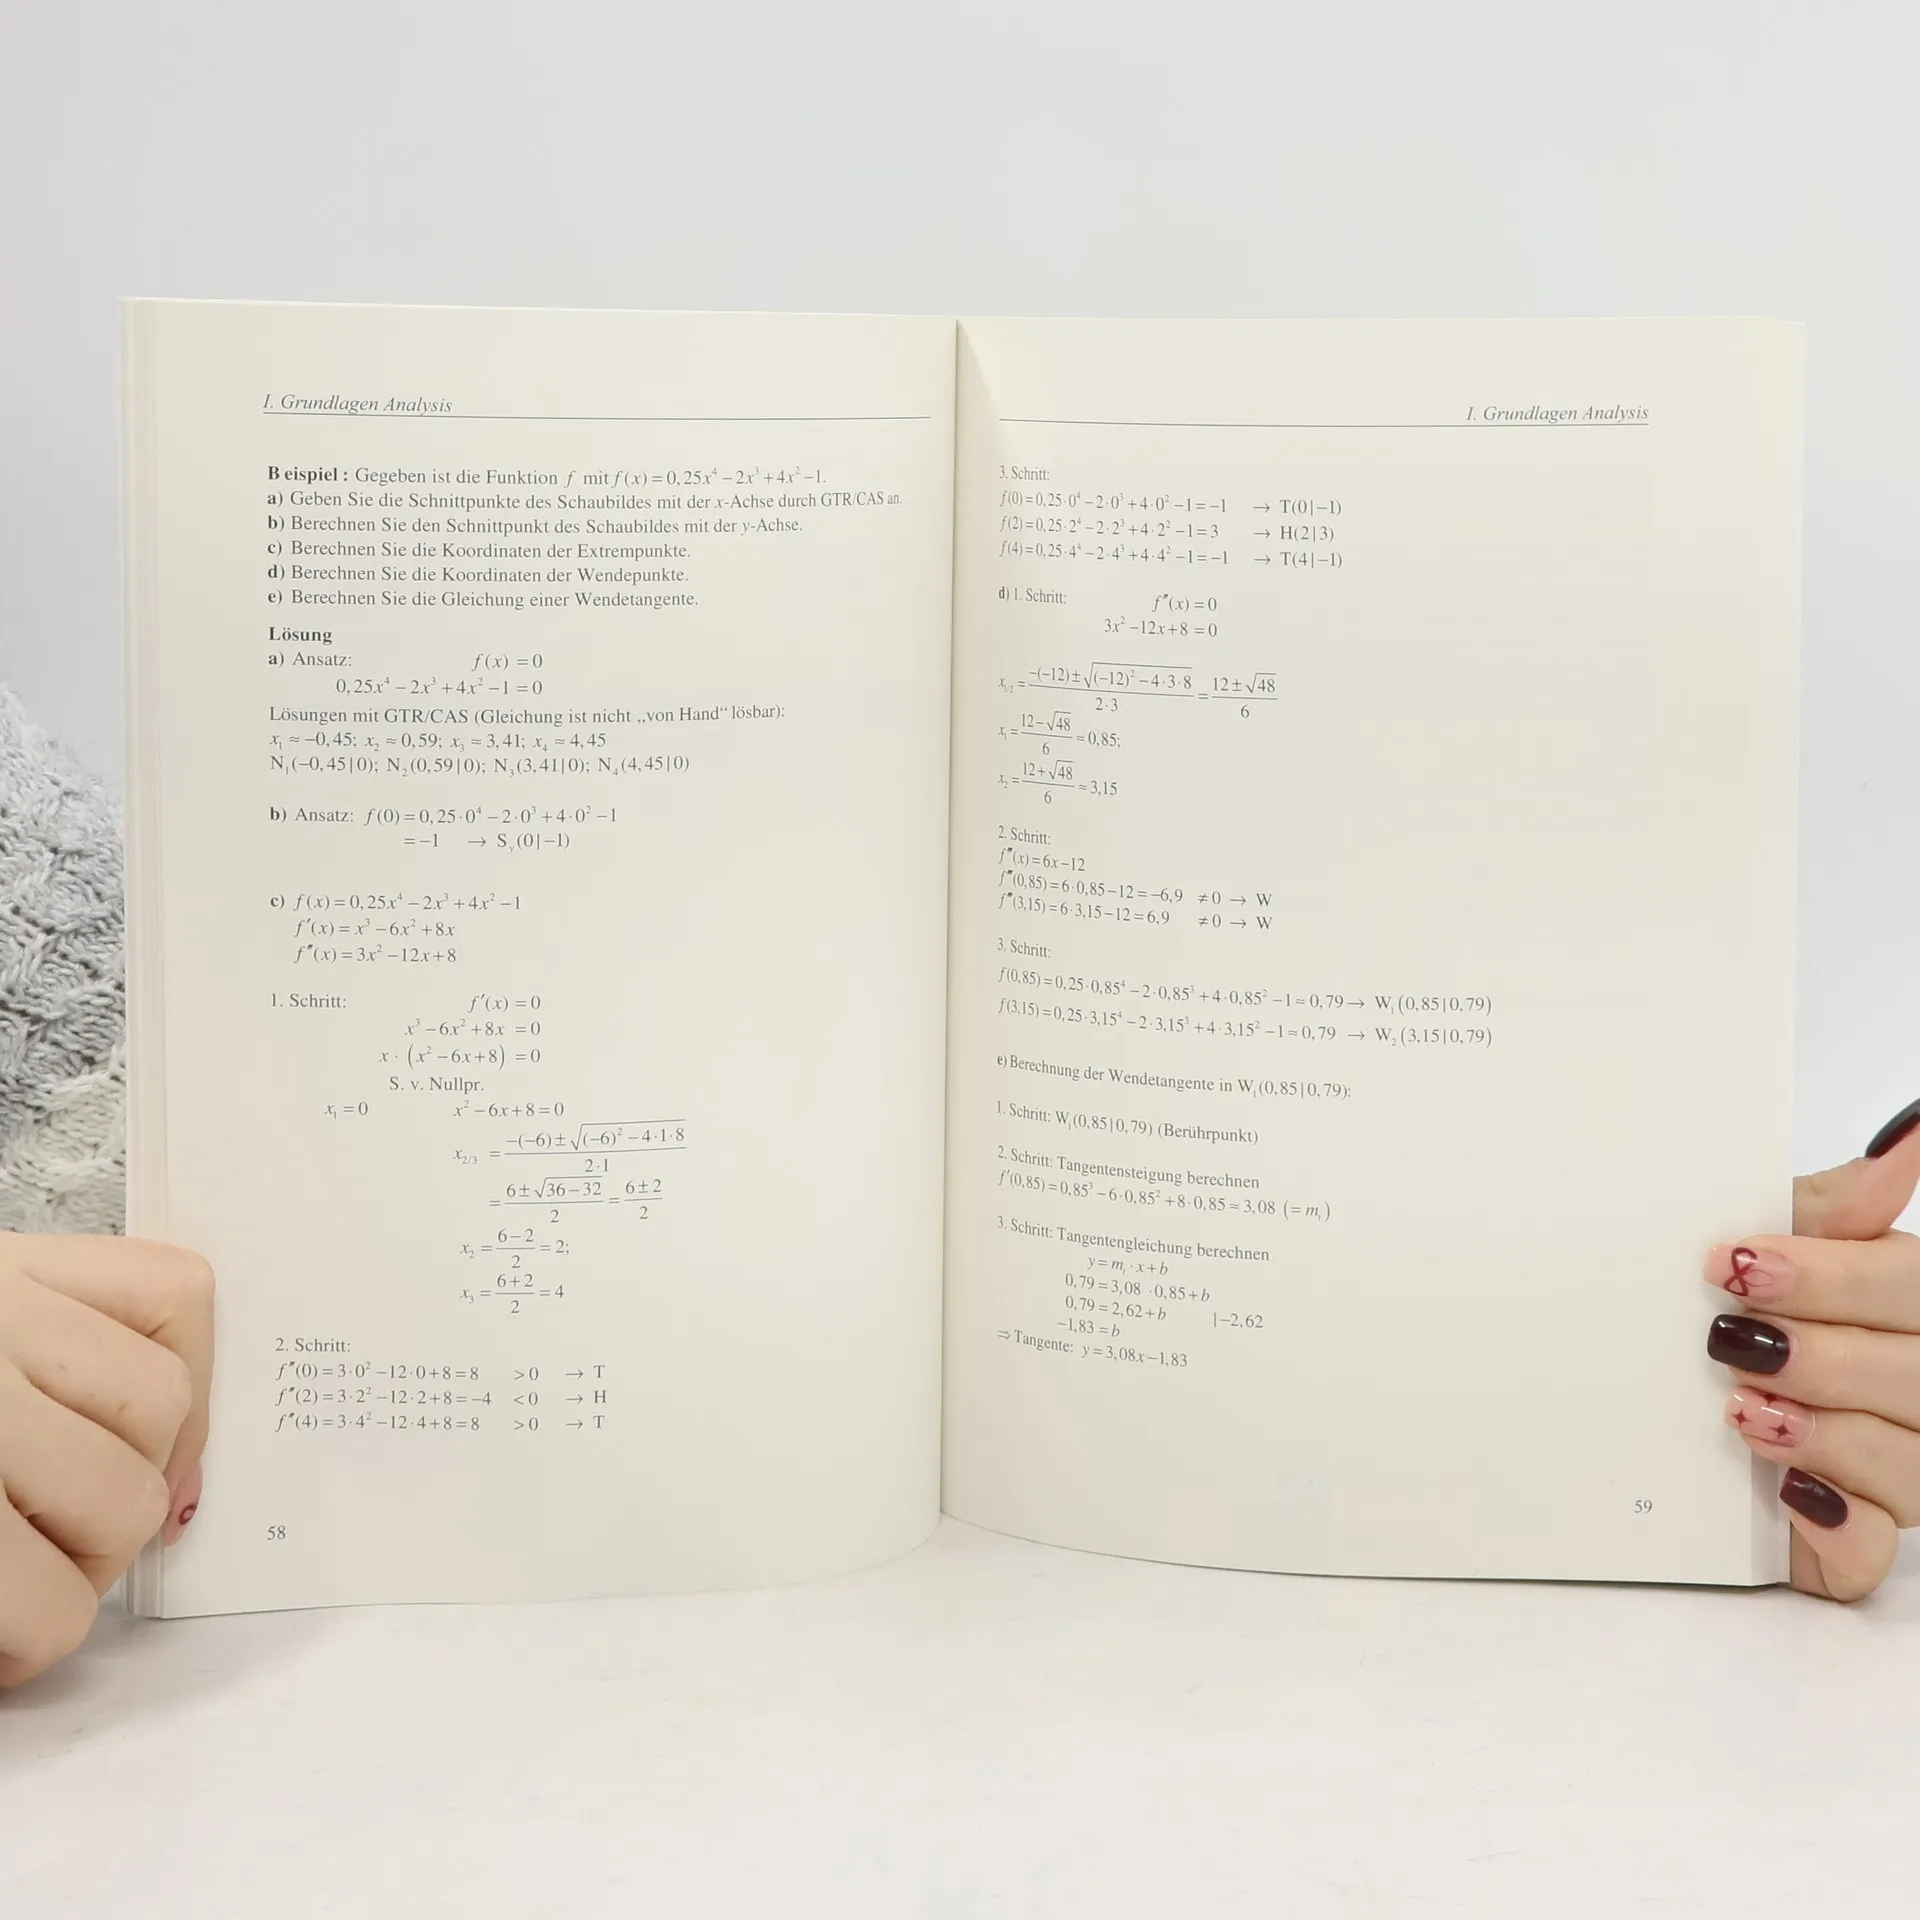 I. Grundlagen Analysis
B eispiel : Gegeben ist die Funktion f mit f(x) = 0,25x⁴ – 2x³ + 4x² – 1.
a) Geben Sie die Schnittpunkte des Schaubildes mit der x-Achse durch GTR/CAS an.
b) Berechnen Sie den Schnittpunkt des Schaubildes mit der y-Achse.
c) Berechnen Sie die Koordinaten der Extrempunkte.
d) Berechnen Sie die Koordinaten der Wendepunkte.
e) Berechnen Sie die Gleichung einer Wendetangente.
Lösung
a) Ansatz: f(x) = 0
0,25x⁴ – 2x³ + 4x² – 1 = 0
Lösungen mit GTR/CAS (Gleichung ist nicht „von Hand“ lösbar):
x₁ ≈ –0,45; x₂ ≈ 0,59; x₃ ≈ 3,41; x₄ ≈ 4,45
N₁(–0,45|0); N₂(0,59|0); N₃(3,41|0); N₄(4,45|0)
b) Ansatz: f(0) = 0,25·0⁴ – 2·0³ + 4·0² – 1
= –1 → S_y(0|–1)
c) f(x) = 0,25x⁴ – 2x³ + 4x² – 1
f′(x) = x³ – 6x² + 8x
f″(x) = 3x² – 12x + 8
1. Schritt: f′(x) = 0
x³ – 6x² + 8x = 0
x · (x² – 6x + 8) = 0
S. v. Nullpr.
x₁ = 0 x² – 6x + 8 = 0
x₂/₃ = (–(–6) ± √((–6)² – 4·1·8))/(2·1)
= (6 ± √(36 – 32))/2 = (6 ± 2)/2
x₂ = (6 – 2)/2 = 2;
x₃ = (6 + 2)/2 = 4
2. Schritt:
f″(0) = 3·0² – 12·0 + 8 = 8 > 0 → T
f″(2) = 3·2² – 12·2 + 8 = –4 < 0 → H
f″(4) = 3·4² – 12·4 + 8 = 8 > 0 → T
58
I. Grundlagen Analysis
3. Schritt:
f(0) = 0,25·0⁴ – 2·0³ + 4·0² – 1 = –1 → T(0|–1)
f(2) = 0,25·2⁴ – 2·2³ + 4·2² – 1 = 3 → H(2|3)
f(4) = 0,25·4⁴ – 2·4³ + 4·4² – 1 = –1 → T(4|–1)
d) 1. Schritt: f″(x) = 0
3x² – 12x + 8 = 0
x₁/₂ = (–(–12) ± √((–12)² – 4·3·8))/(2·3) = (12 ± √48)/6
x₁ = (12 – √48)/6 ≈ 0,85;
x₂ = (12 + √48)/6 ≈ 3,15
2. Schritt:
f‴(x) = 6x – 12
f‴(0,85) = 6·0,85 – 12 = –6,9 ≠ 0 → W
f‴(3,15) = 6·3,15 – 12 = 6,9 ≠ 0 → W
3. Schritt:
f(0,85) = 0,25·0,85⁴ – 2·0,85³ + 4·0,85² – 1 ≈ 0,79 → W₁(0,85|0,79)
f(3,15) = 0,25·3,15⁴ – 2·3,15³ + 4·3,15² – 1 ≈ 0,79 → W₂(3,15|0,79)
e) Berechnung der Wendetangente in W₁(0,85|0,79):
1. Schritt: W₁(0,85|0,79) (Berührpunkt)
2. Schritt: Tangentensteigung berechnen
f′(0,85) = 0,85³ – 6·0,85² + 8·0,85 ≈ 3,08 (= m_t)
3. Schritt: Tangentengleichung berechnen
y = m_t · x + b
0,79 = 3,08 ·0,85 + b
0,79 = 2,62 + b |–2,62
–1,83 = b
⇒ Tangente: y = 3,08x – 1,83
59